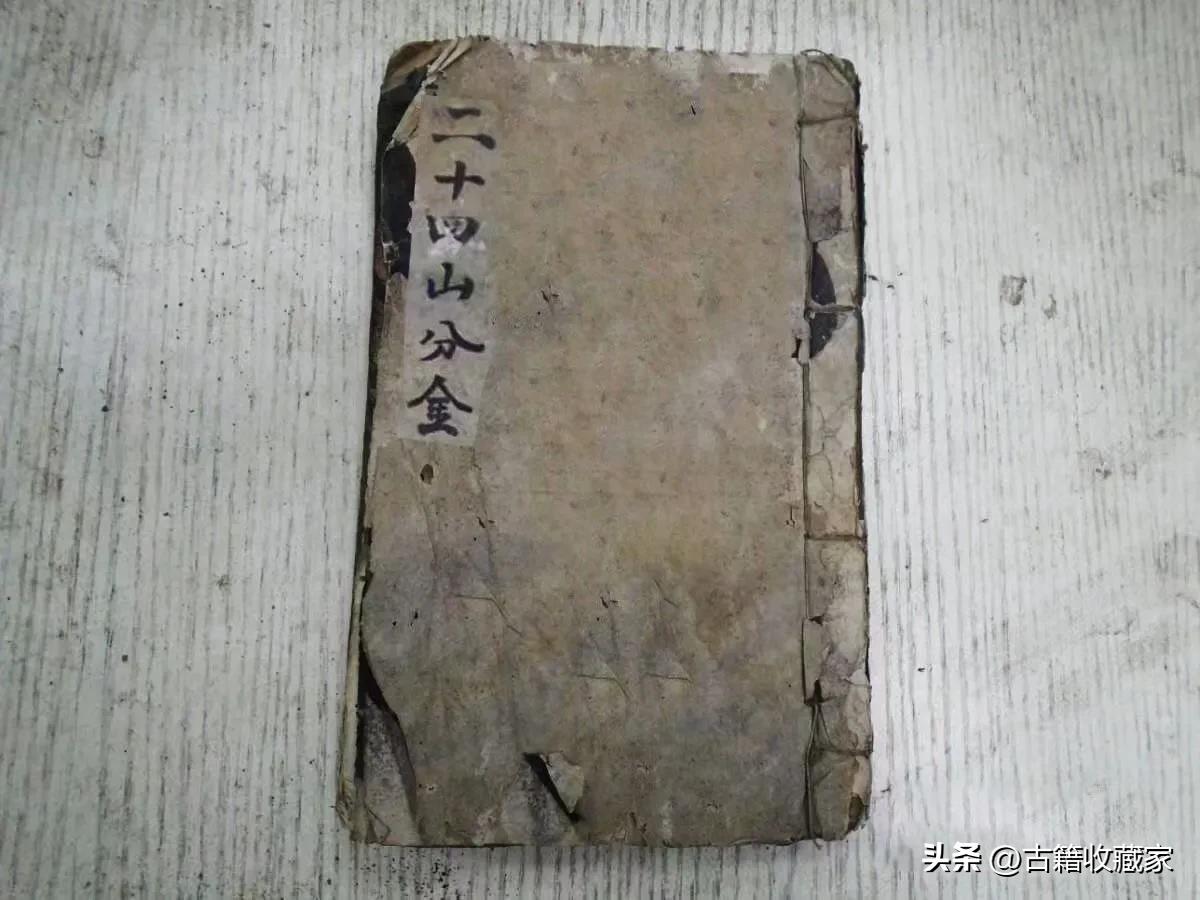 二十四山分金
头条 @古籍收藏家